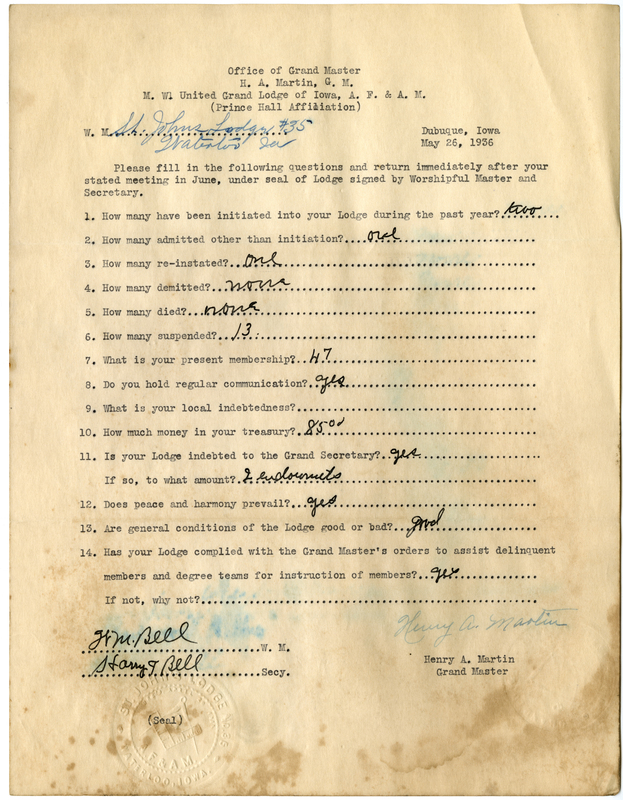 Office of Grand Master
H. A. Martin, G. M.
M. Wl United Grand Lodge of Iowa, A. F. & A. M.
(Prince Hall Affiliation)
W. M. St. Johns Lodge #35
Waterloo Ia
Dubuque, Iowa
May 26, 1936
Please fill in the following questions and return immediately after your
stated meeting in June, under seal of Lodge signed by Worshipful Master and
Secretary.
1. How many have been initiated into your Lodge during the past year? two
2. How many admitted other than initiation? one
3. How many re-instated? one
4. How many demitted? none
5. How many died? none
6. How many suspended? 13.
7. What is your present membership? 47
8. Do you hold regular communication? yes
9. What is your local indebtedness?
10. How much money in your treasury? 85 00
11. Is your Lodge indebted to the Grand Secretary? yes
If so, to what amount? 2 endowments
12. Does peace and harmony prevail? yes
13. Are general conditions of the Lodge good or bad? good
14. Has your Lodge complied with the Grand Master's orders to assist delinquent
members and degree teams for instruction of members? yes
If not, why not?
Henry A. Martin
Bell W. M.
Harry Bell Secy.
Henry A. Martin
Grand Master
(Seal)